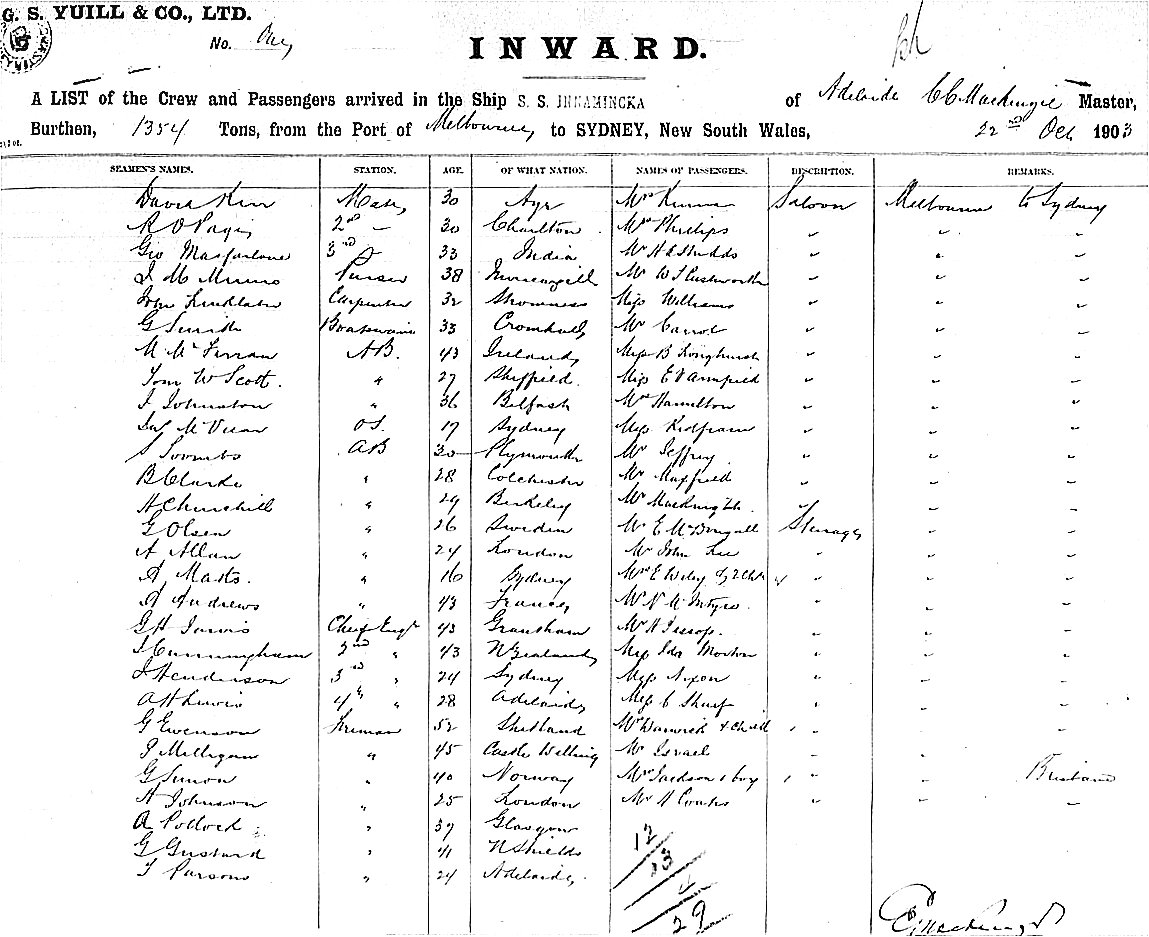 G. S. YUILL & CO., LTD.
No. One
INWARD.
A LIST of the Crew and Passengers arrived in the Ship S. S. INNAMINCKA of Adelaide C C Mackenzie Master,
Burthen, 1354 Tons, from the Port of Melbourne to SYDNEY, New South Wales, 22nd Oct 1903
SEAMEN'S NAMES. STATION. AGE. OF WHAT NATION. NAMES OF PASSENGERS. DESCRIPTION. REMARKS.
David Kerr Mate 30 Ayr Saloon Melbourne to Sydney
2nd 30 Charlton Mr Phillips " " "
Geo Macfarlane 3rd 33 India " " "
J M Munro Purser 38 Invercargill Mr W J Cushworth " " "
Carpenter 32 Miss Williams " " "
G Smith Boatswain 33 Mr Carrol " " "
AB. 43 Ireland Miss B Longhurst " " "
Tom W Scott. " 27 Sheffield. " " "
J Johnston " 36 Belfast Hamilton " " "
OS. 17 Sydney Miss " " "
S Soombs AB 30 Plymouth Mr Jeffrey " " "
B Clarke " 28 Colchester Mr Maxfield " " "
H Churchill " 29 Berkeley " " "
G Olsen " 26 Sweden Mr E McDougall Steerage " "
A Allan " 24 London Mr John Lee " " "
A " 16 Sydney " " "
A Andrews " 43 France Mr N McIntyre " " "
G H Jarvis Chief Engr 43 Grantham Mr H Jessop. " " "
J Cunningham 2nd " 43 N Zealand Miss Ida Morton " " "
J Henderson 3rd " 24 Sydney Miss Nixon " " "
A H Lewis 4th " 28 Adelaide Miss C Sharp " " "
G Evenson Fireman 52 Shetland Warwick & Child " " "
J Milligan " 45 Castle Welling Mr Israel " " "
G Simon " 40 Norway Jackson & boy " " Brisbane
H Johnson " 25 London Mr H Coates " " "
A Pollock " 37 Glasgow
G Gustard " 41 N Shields
J Parsons " 24 Adelaide
12
13
4
29